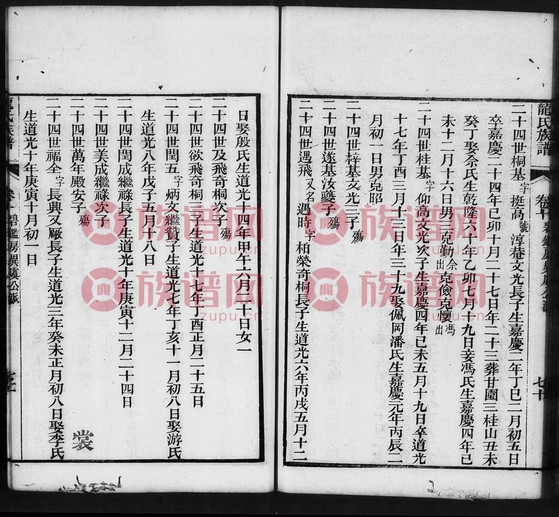 龍氏族譜
卷十
七十
二十四世桐基字挺高號淳菴文光長子生嘉慶二年丁巳二月初五日
卒嘉慶二十四年己卯十月二十七日年二十三葬甘圃三桂山丑未
癸丁娶佘氏生乾隆六十年乙卯七月十九日妾馮氏生嘉慶四年己
未十二月十六日男克勤佘出克脩克懷馮出
二十四世桂基字仰高文光次子生嘉慶四年己未五月十九日卒道光
十七年丁酉三月十三日年三十九娶佩岡潘氏生嘉慶元年丙辰二
月初一日男克昭
二十四世梓基文光三子殤
二十四世遂基汝夔子殤
二十四世遇飛又名遇時字柏榮奇桐長子生道光六年丙戌五月十二
日娶殷氏生道光十四年甲午六月二十日女一
二十四世及飛奇桐次子殤
二十四世欲飛奇桐三子生道光十七年丁酉正月二十五日
二十四世閏五字炳文繼贊子生道光七年丁亥十一月初八日娶游氏
生道光八年戊子五月十八日
二十四世閏成繼祿長子生道光十年庚寅十二月二十四日
二十四世美成繼祿次子殤
二十四世萬年殿安子殤
二十四世福全字長興又厰長子生道光三年癸未正月初八日娶李氏
生道光十年庚寅十月初一日
裳
族谱网
zupu.cn